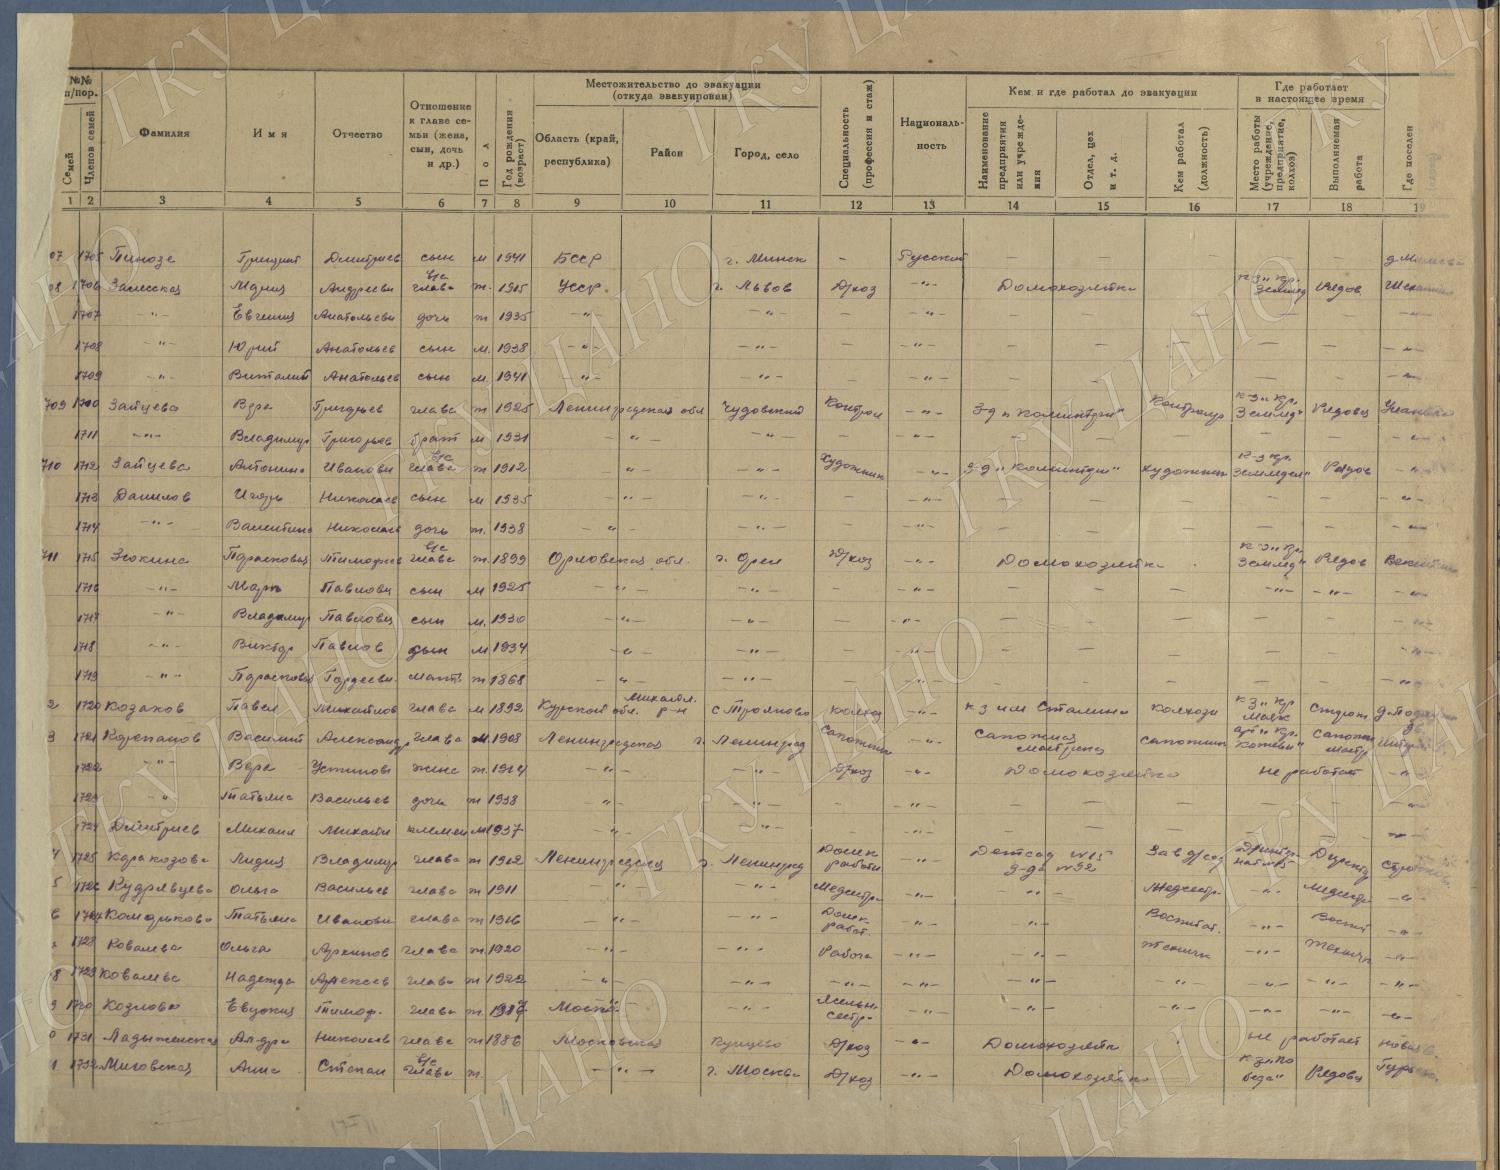 №№ п/пор.
Местожительство до эвакуации (откуда эвакуирован)
Кем и где работал до эвакуации
Где работает в настоящее время
Семей
Членов семей
Фамилия
Имя
Отчество
Отношение к главе семьи (жена, сын, дочь и др.)
Пол
Год рождения (возраст)
Область (край, республика)
Район
Город, село
Специальность (профессия и стаж)
Националь-ность
Наименование предприятия или учрежде-ния
Отдел, цех и т. д.
Кем работал (должность)
Место работы (учреждение, предприятие, колхоз)
Выполняемая работа
Где поселен
1 2 3 4 5 6 7 8 9 10 11 12 13 14 15 16 17 18 19
07 1705 Григорий Дмитриев сын м 1941 БССР г. Минск - Русский — — — — —
08 1706 Залесская Мария Андреевн в/с глава ж. 1915 УССР. г. Львов Д/хоз -"- Домохозяйка к-з "Кр. Землед Рядов
1707 -"- Евгения Анатольевн дочь ж 1935 -"- -"- — -"- — — — — — -"-
1708 -"- Юрий Анатольев сын м. 1938 -"- -"- — -"- — — — — — -"-
1709 -"- Виталий Анатольев сын м. 1941 -"- -"- — -"- — — — — — -"-
709 1710 Зайцева Вера Григорьев глава ж 1925 Ленинградская обл Чудовский Контрол -"- З-д "Коминтерн" Контролер к-з "Кр. Землед" Рядовая
1711 -"- Владимир Григорьев брат м 1931 -"- -"- — -"- — — — — — -"-
710 1712 Зайцева Антонина Ивановн в/с глава ж 1912 -"- -"- Художник -"- З-д "Коминтерн" художник к-з Кр. Земледел" Рядов -"-
1713 Данилов Игорь Николаев сын м 1935 -"- -"- — -"- — — — — — -"-
1714 -"- Валентина Николаев дочь ж. 1938 -"- -"- — -"- — — — — — -"-
711 1715 Зюкина Парасковья Тимофеев в/с глава ж. 1899 Орловская обл. г. Орел Д/хоз -"- Домохозяйка к-з "Кр. Землед" Рядов
1716 -"- Марк Павлович сын м 1925 -"- -"- — -"- — — — -"- -"- -"-
1717 -"- Владимир Павлович сын м. 1930 -"- -"- — -"- — — — — — -"-
1718 -"- Виктор Павлов сын м 1934 -"- -"- — -"- — — — — — -"-
1719 -"- Парасковья Гордеевн. мать ж 1868 -"- -"- — -"- — — — — — -"-
2 1720 Козаков Павел Михайлов глава м 1892 Курская обл. Михайл. р-н с Трояново колхоз -"- к з им Сталина колхозн к з "Кр маяк
3 1721 Василий Александр глава м 1908 Ленинградская г. Ленинград Сапожник -"- Сапожная мастерская сапожник арт "Кр. кожевн" Сапожн мастер
1722 -"- Вера Устинов жена ж. 1914 -"- -"- Д/хоз -"- Домохозяйка не работает -"-
1723 -"- Татьяна Васильев дочь ж 1938 -"- -"- — -"- — — — — — -"-
1724 Дмитриев Михаил Михайл племен м 1937 -"- -"- — -"- — — — — — -"-
4 1725 Каракозова Лидия Владимир глава ж 1912 Ленинградская г. Ленинград Дошк работн -"- Детсад №15 з-да №92 Зав д/сад
5 1726 Кудрявцева Ольга Васильев глава ж 1911 -"- -"- Медсестра -"- -"- Медсестр. -"- медсестр -"-
6 1727 Комарькова Татьяна Ивановн глава ж 1916 -"- -"- Дошк. работ. -"- -"- Воспитат. -"- Воспит -"-
1728 Ковалева Ольга Архипов глава ж. 1920 -"- -"- Рабоча -"- -"- Техничк -"- Техничк -"-
8 1729 Ковалева Надежда Алексеев глава ж 1922 -"- -"- -"- -"- -"- -"- -"- -"- -"-
9 1730 Козлова Евдокия Тимоф. глава ж. Моск -"- -"- сестр. -"- -"- -"- -"- -"- -"-
0 1731 Ладыженская Ал-дра Николаев глава ж 1886 Московская Кунцево Д/хоз -"- Домохозяйка не работает
1 1732 Миговская Анна Степан в/с глава ж. -"- г. Москва Д/хоз -"- Домохозяйка к-з "Победа" Рядова
ГКУ ЦАНО